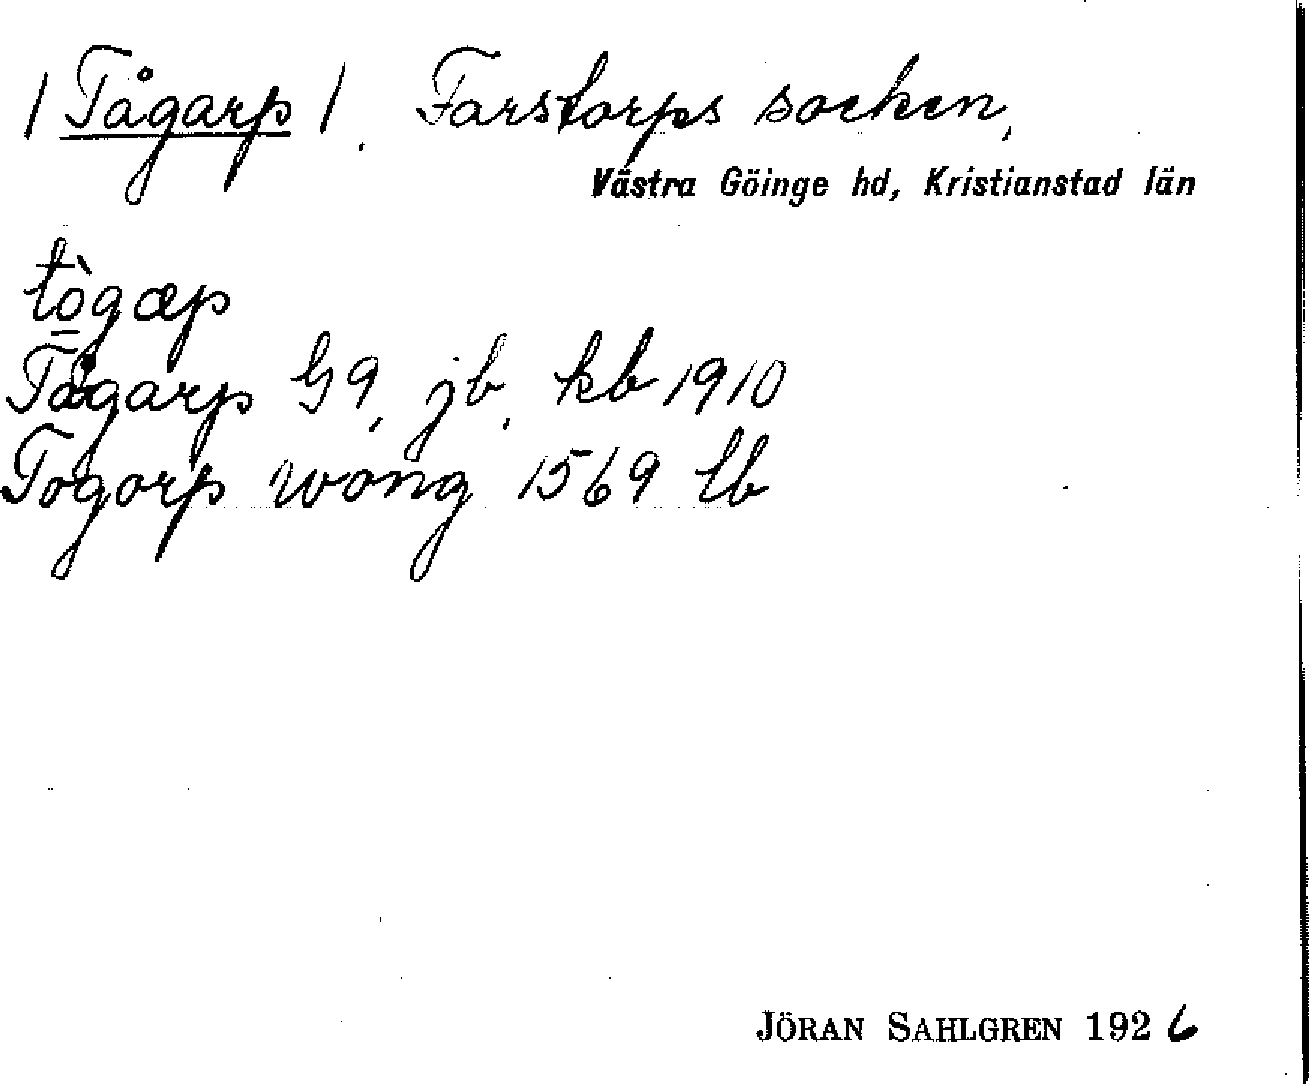 / Tågarp /. Farstorps socken,
Västra Göinge hd, Kristianstad län
tògæp
Tågarp G9, jb, kb 1910
Togorp wong 1569 lb
JÖRAN SAHLGREN 1926